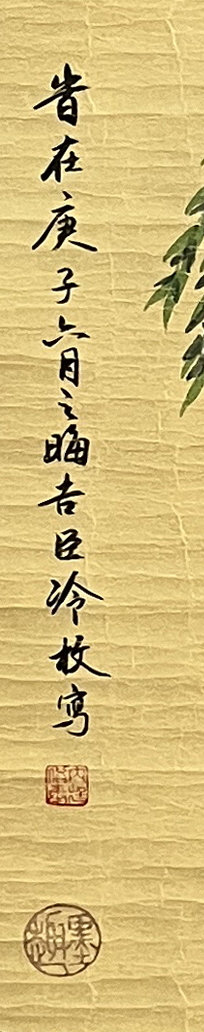 旹在庚子六月之晦吉臣冷枚写